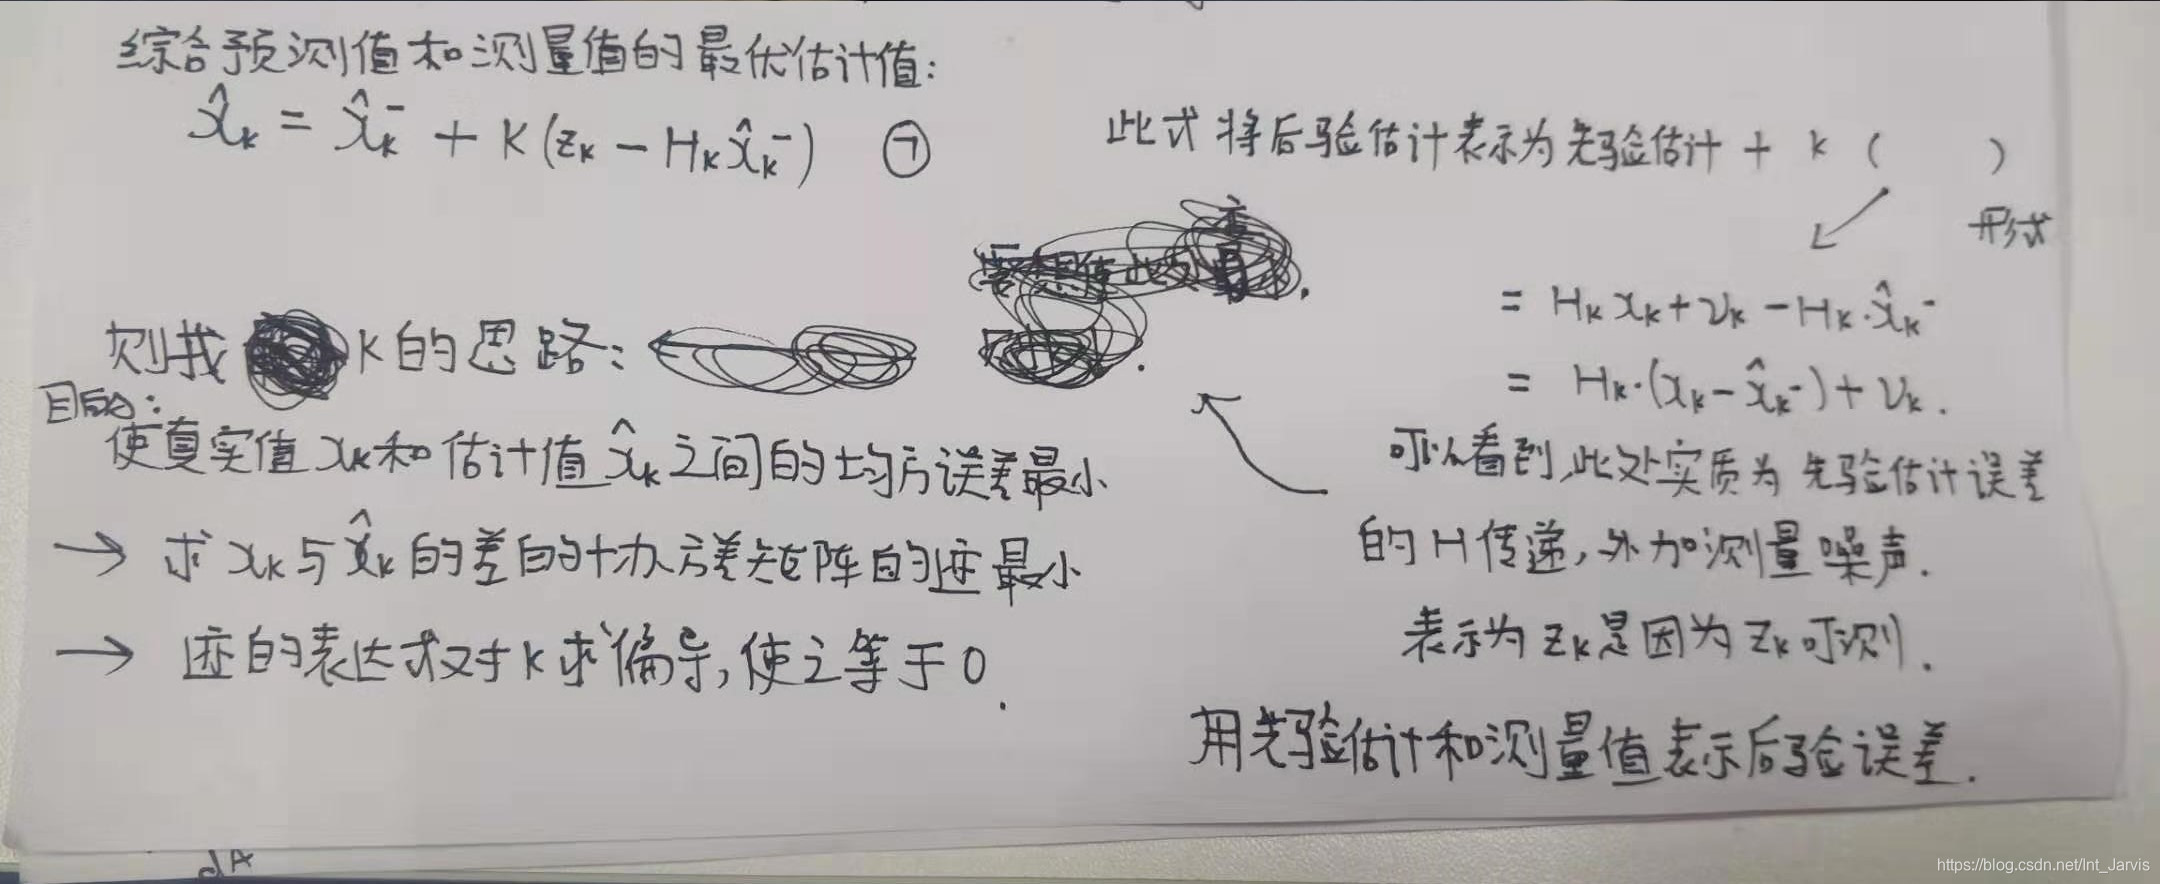 综合预测值和测量值的最优估计值:
x̂ₖ = x̂ₖ⁻ + K(zₖ − Hₖx̂ₖ⁻) ⑦
则找 K的思路:
目的:
使真实值xₖ和估计值x̂ₖ之间的均方误差最小
→ 求xₖ与x̂ₖ的差的协方差矩阵的迹最小
→ 迹的表达式对K求偏导,使之等于0.
此式将后验估计表示为先验估计 + K ( )
形式
= Hₖxₖ + νₖ − Hₖ·x̂ₖ⁻
= Hₖ·(xₖ − x̂ₖ⁻) + νₖ.
可以看到,此处实质为先验估计误差
的H传递,外加测量噪声.
表示为zₖ是因为zₖ可测.
用先验估计和测量值表示后验误差.
dA
https://blog.csdn.net/Int_Jarvis